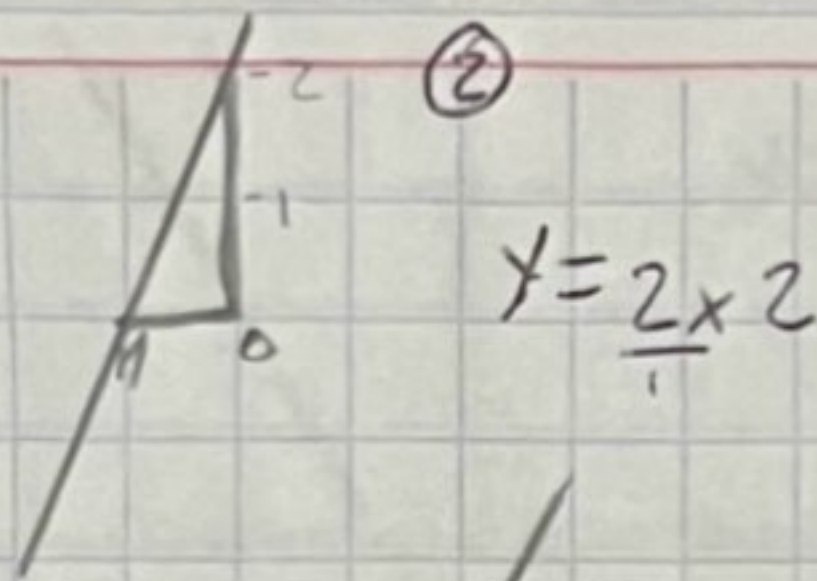 2
-2
-1
y = 2/1 x 2
0